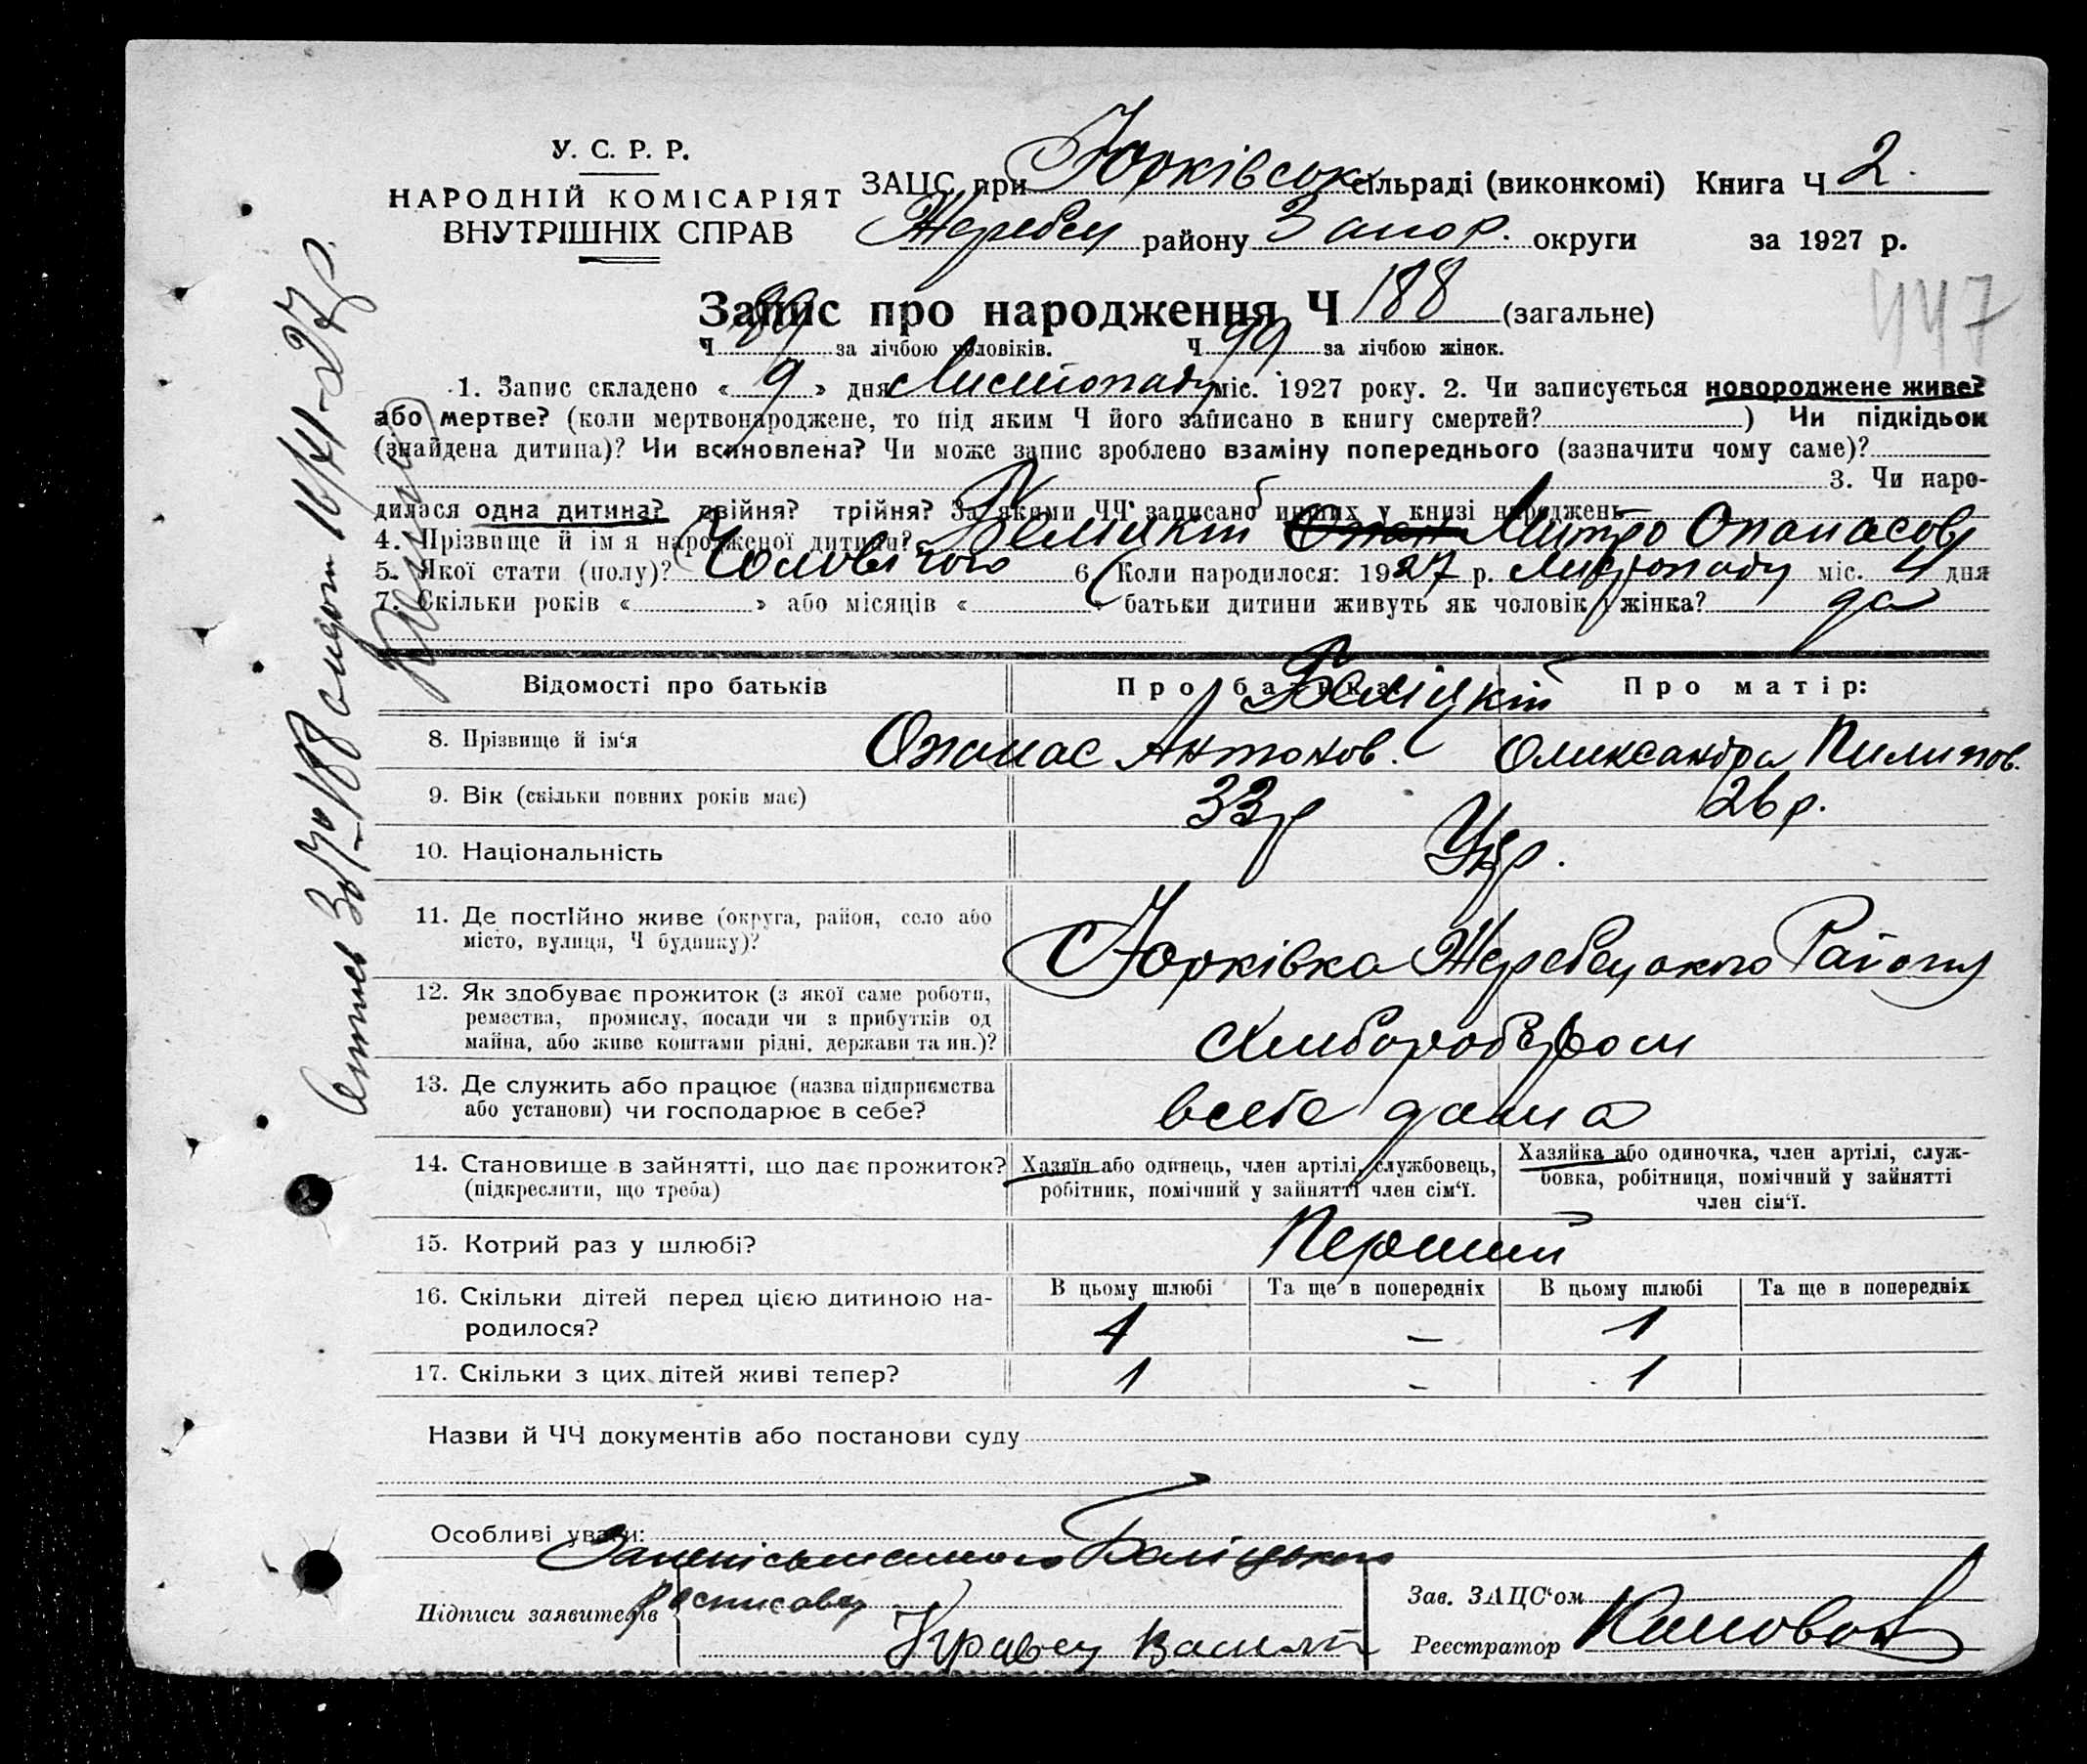 У. С. Р. Р.
НАРОДНІЙ КОМІСАРІЯТ
ВНУТРІШНІХ СПРАВ
ЗАЦС при Юрківськ сільраді (виконкомі) Книга Ч 2.
Жеребец району Запор. округи за 1927 р.
Запис про народження Ч 188 (загальне)
447
Ч 89 за лічбою чоловіків. Ч 99 за лічбою жінок.
1. Запис складено « 9 » дня Листопаду міс. 1927 року. 2. Чи записується новороджене живе?
або мертве? (коли мертвонароджене, то під яким Ч його записано в книгу смертей? ) Чи підкідьок
(знайдена дитина)? Чи всиновлена? Чи може запис зроблено взаміну попереднього (зазначити чому саме)?
3. Чи наро-
дилася одна дитина? двійня? трійня? За якими ЧЧ записано инших у книзі народжень
4. Прізвище й ім'я народженої дитини? Белицкій Митро Опанасов
5. Якої стати (полу)? Чоловічого 6. Коли народилося: 1927 р. Листопаду міс. 4 дня
7. Скільки років « » або місяців « » батьки дитини живуть як чоловік і жінка? да
Відомості про батьків Про батька: Про матір:
Беліцкій
8. Прізвище й ім'я Опанас Антонов. Олександра Пилипов.
9. Вік (скільки повних років має) 33 р 26 р.
10. Національність Укр.
11. Де постійно живе (округа, район, село або
місто, вулиця, Ч будинку)?
Юрківка Жеребецького Району
12. Як здобуває прожиток (з якої саме роботи,
ремества, промислу, посади чи з прибутків од
майна, або живе коштами рідні, держави та ин.)?
хлиборобством
13. Де служить або працює (назва підприємства
або установи) чи господарює в себе?
всебе дома
14. Становище в зайнятті, що дає прожиток?
(підкреслити, що треба)
Хазяїн або одинець, член артілі, службовець,
робітник, помічний у зайнятті член сім'ї.
Хазяйка або одиночка, член артілі, служ-
бовка, робітниця, помічний у зайнятті
член сім'ї.
15. Котрий раз у шлюбі? Перший
16. Скільки дітей перед цією дитиною на-
родилося?
В цьому шлюбі Та ще в попередніх В цьому шлюбі Та ще в попередніх
1 – 1
17. Скільки з цих дітей живі тепер? 1 – 1
Назви й ЧЧ документів або постанови суду
Особливі уваги:
Беліцкого
росписавсь
Підписи заявителів
Кравец Василь
Зав. ЗАЦС'ом
Реєстратор